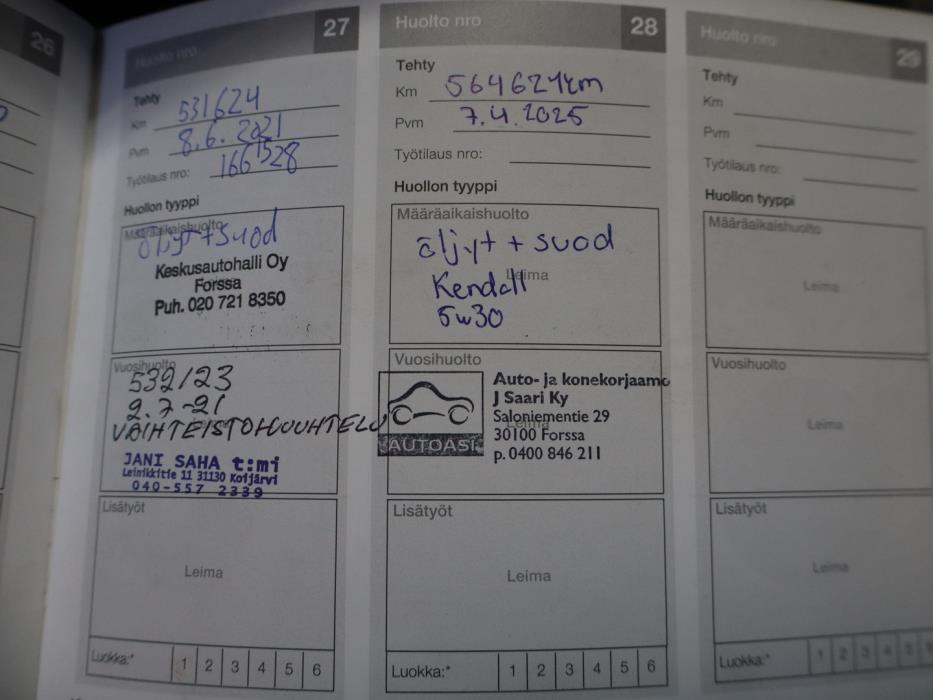 26
27
Huolto nro
Tehty
Km 531624
Pvm 8.6.2021
Työtilaus nro: 166 1528
Huollon tyyppi
Määräaikaishuolto
öljyt + suod
Keskusautohalli Oy
Forssa
Puh. 020 721 8350
Vuosihuolto
532123
2.7-21
VAIHTEISTOHUUHTELU
JANI SAHA t:mi
Leinikkitie 11 31130 Koijärvi
040-557 2339
Lisätyöt
Leima
Luokka:* 1 2 3 4 5 6
Huolto nro 28
Tehty
Km 564621km
Pvm 7.4.2025
Työtilaus nro:
Huollon tyyppi
Määräaikaishuolto
öljyt + suod
Leima
Kendall
5w30
Vuosihuolto
Auto- ja konekorjaamo
J Saari Ky
Saloniementie 29
Leima
30100 Forssa
p. 0400 846 211
AUTOASI
Lisätyöt
Leima
Luokka:* 1 2 3 4 5 6
Huolto nro 29
Tehty
Km
Pvm
Työtilaus nro:
Huollon tyyppi
Määräaikaishuolto
Leima
Vuosihuolto
Leima
Lisätyöt
Leima
Luokka:* 1 2 3 4 5